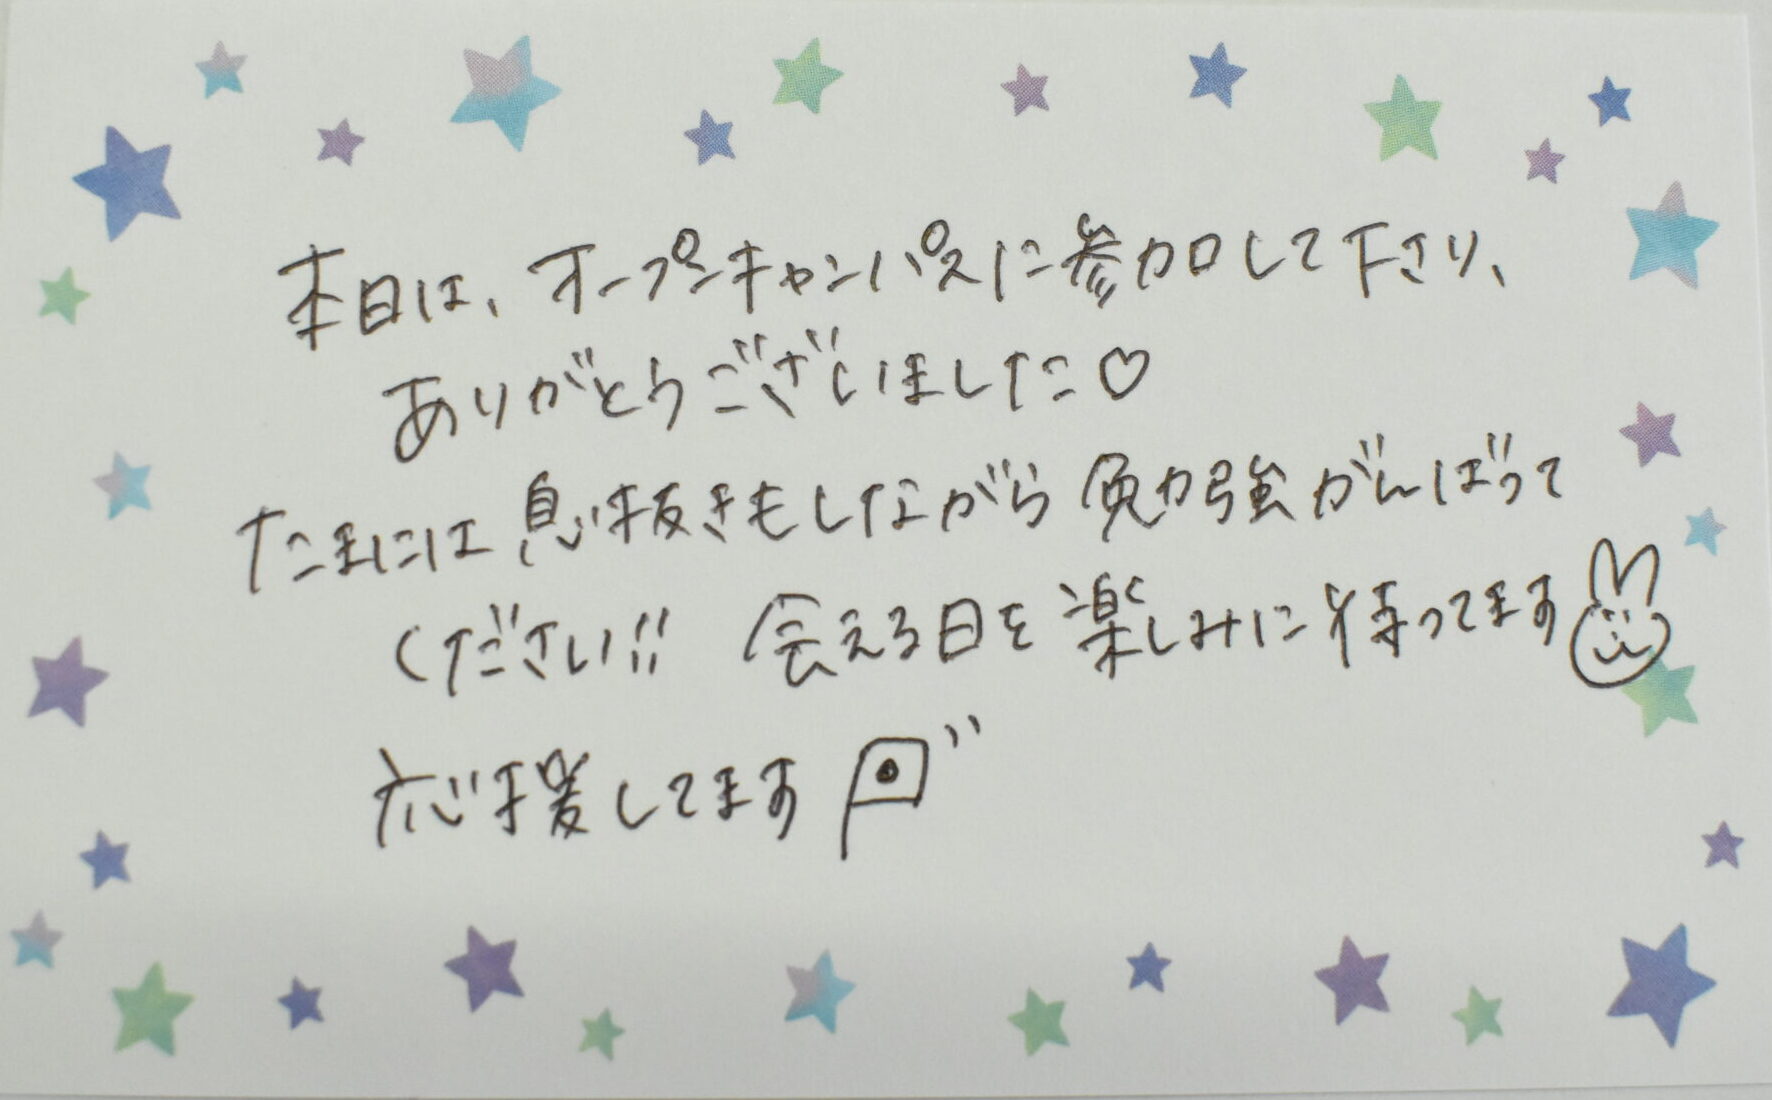 本日は、オープンキャンパスに参加して下さり、
ありがとうございました♡
たまには息抜きもしながら勉強がんばって
ください!! 会える日を楽しみに待ってます
応援してます